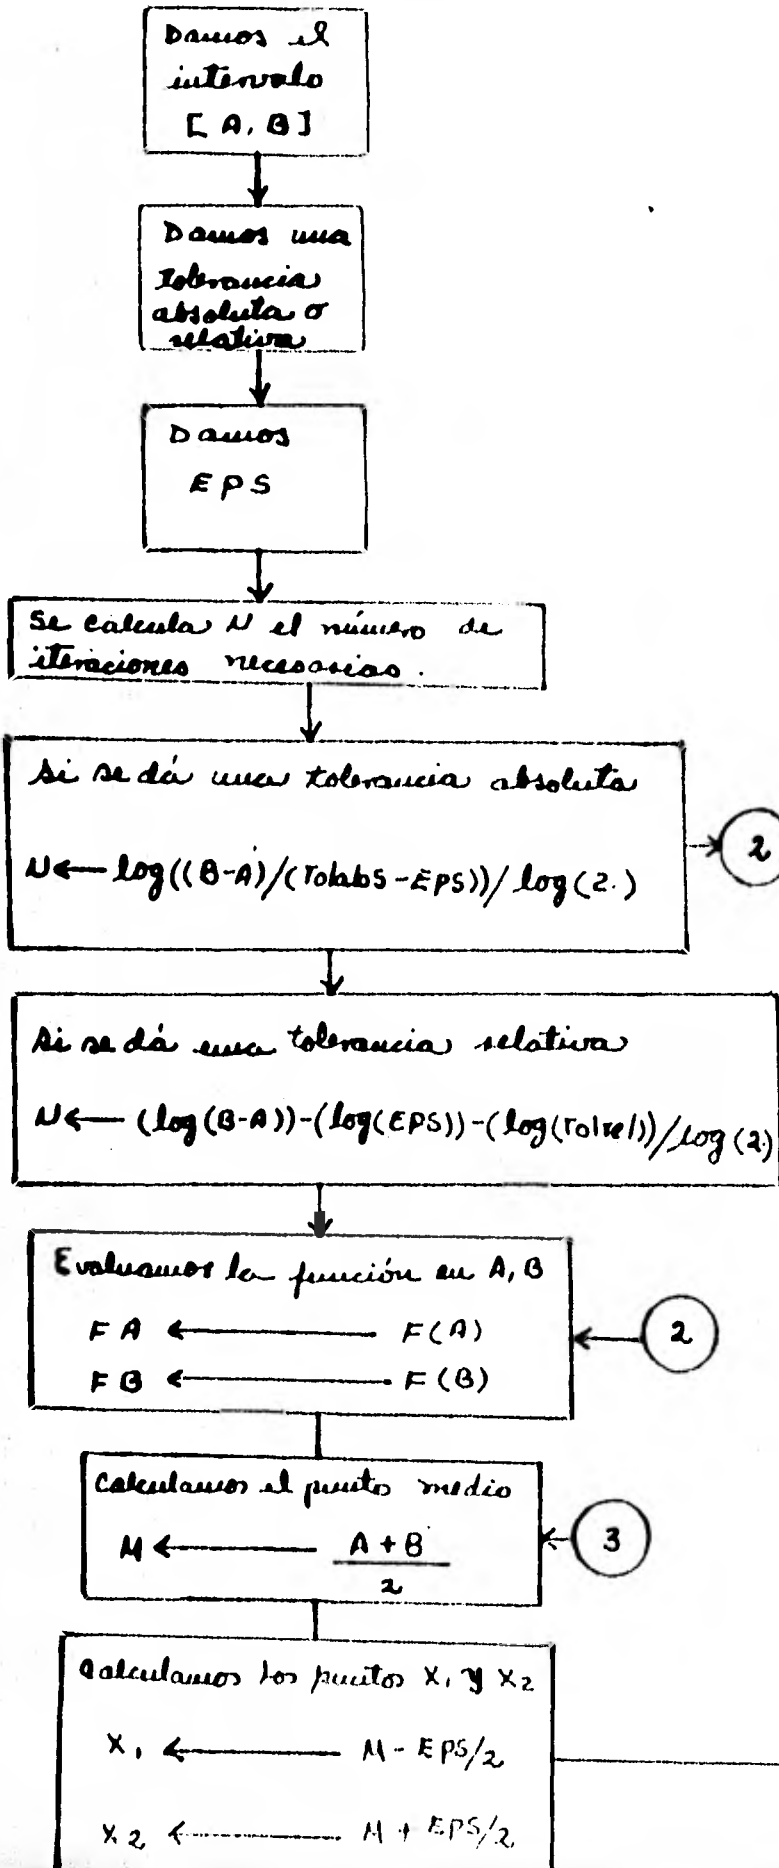 Damos el
intervalo
[A, B]
Damos una
tolerancia
absoluta o
relativa
Damos
EPS
Se calcula N el número de
iteraciones necesarias.
Si se dá una tolerancia absoluta
N ← log((B-A)/(Tolabs-EPS))/log(2.)
2
Si se dá una tolerancia relativa
N ← (log(B-A))-(log(EPS))-(log(Tolrel))/log(2.)
Evaluamos la función en A, B
FA ← F(A)
2
FB ← F(B)
Calculamos el punto medio
M ← A+B
2
3
Calculamos los puntos X1 y X2
X1 ← M - EPS/2
X2 ← M + EPS/2